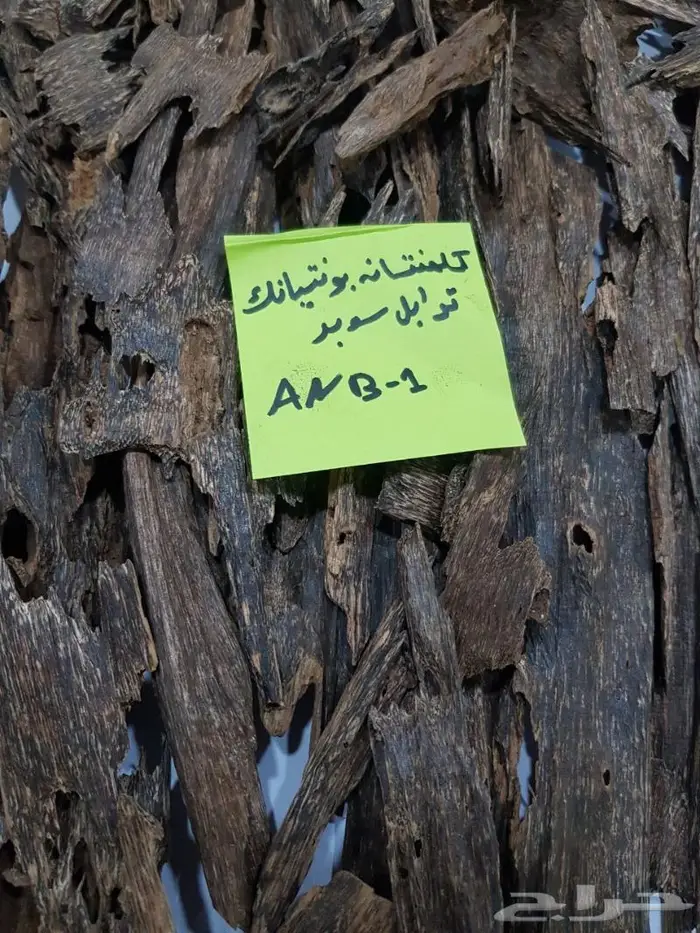 كلمنتانه بونتيانك
تر ابل سوبر
ANB-1
حراج